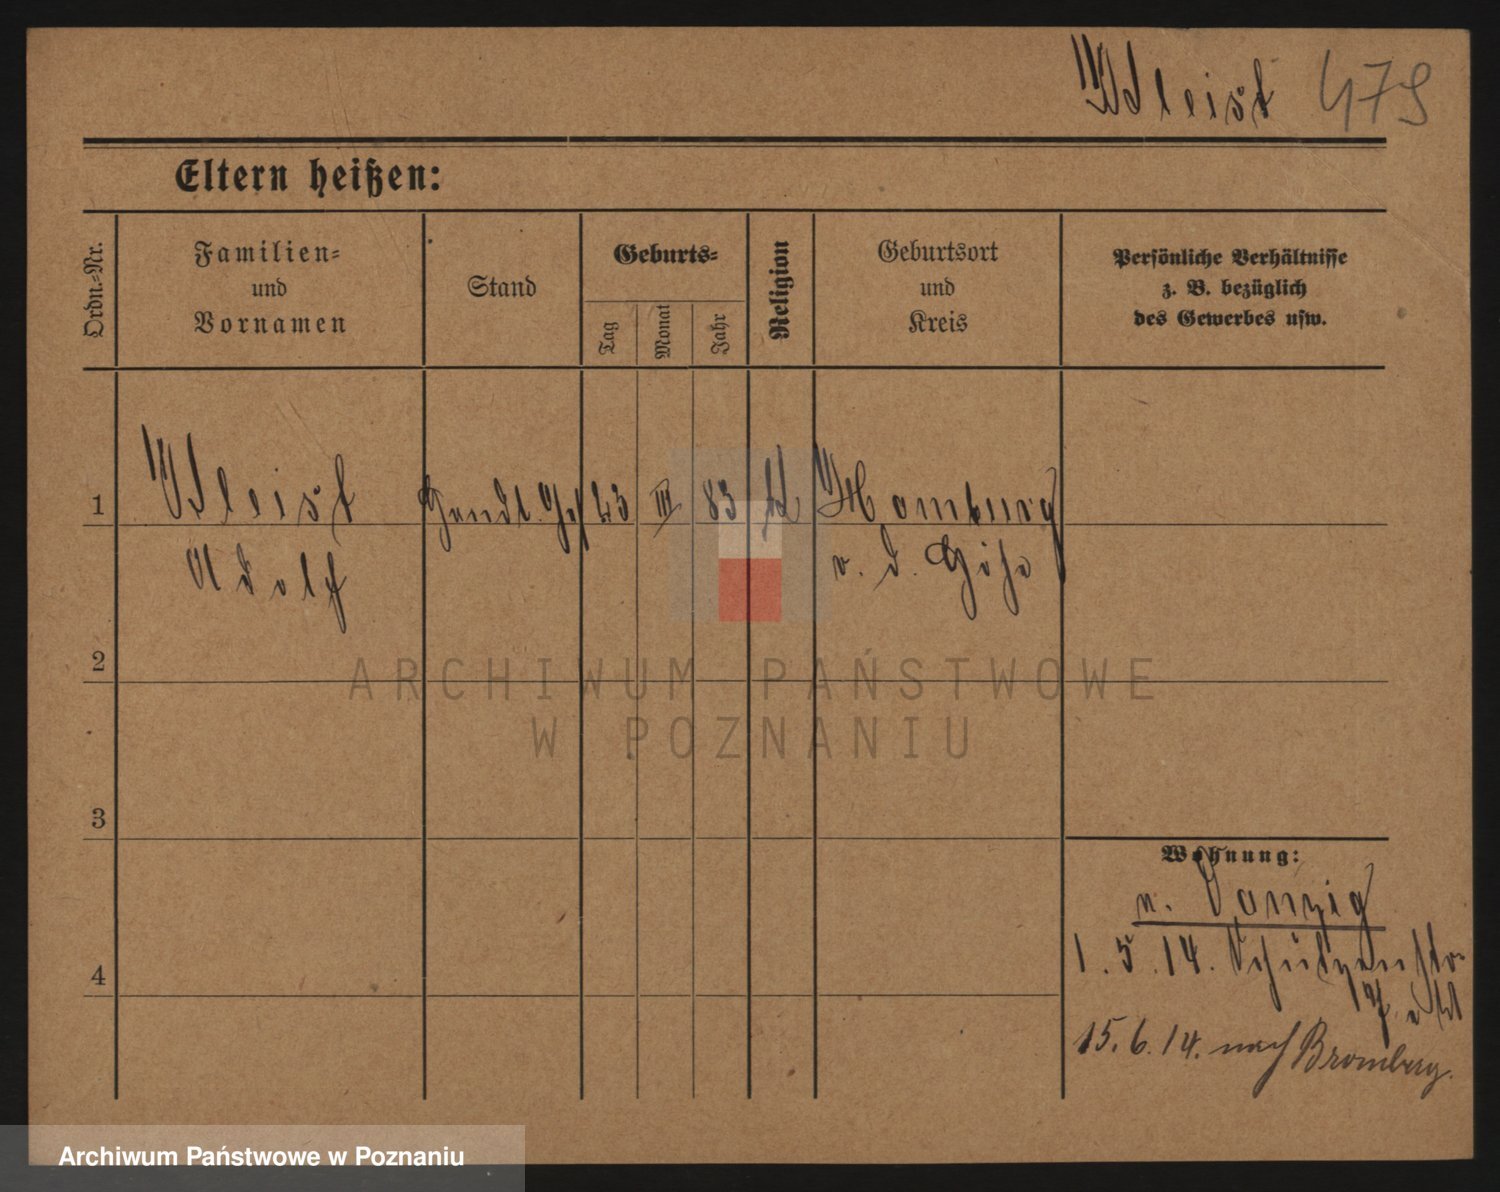 Wleist 479
Eltern heißen:
Ordn.-Nr.
Familien-
und
Vornamen
Stand
Geburts-
Tag
Monat
Jahr
Religion
Geburtsort
und
Kreis
Persönliche Verhältnisse
z. B. bezüglich
des Gewerbes usw.
1
Wleist
23 III 83
Homburg
Adolf
v. d. Höhe
2
ARCHIWUM PAŃSTWOWE
W POZNANIU
3
Wohnung:
n. Danzig
4
1.5.14. Schützenstr.
15.6.14. nach Bromberg.
Archiwum Państwowe w Poznaniu